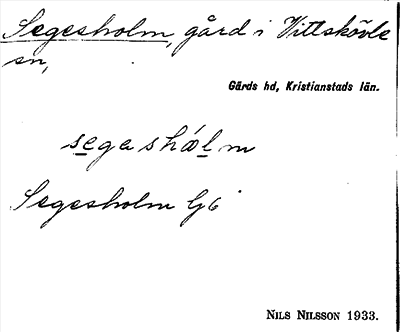 Segesholm, gård i Vittskövle
sn,
Gärds hd, Kristianstads län.
segeshålm
Segesholm Gj 6
NILS NILSSON 1933.